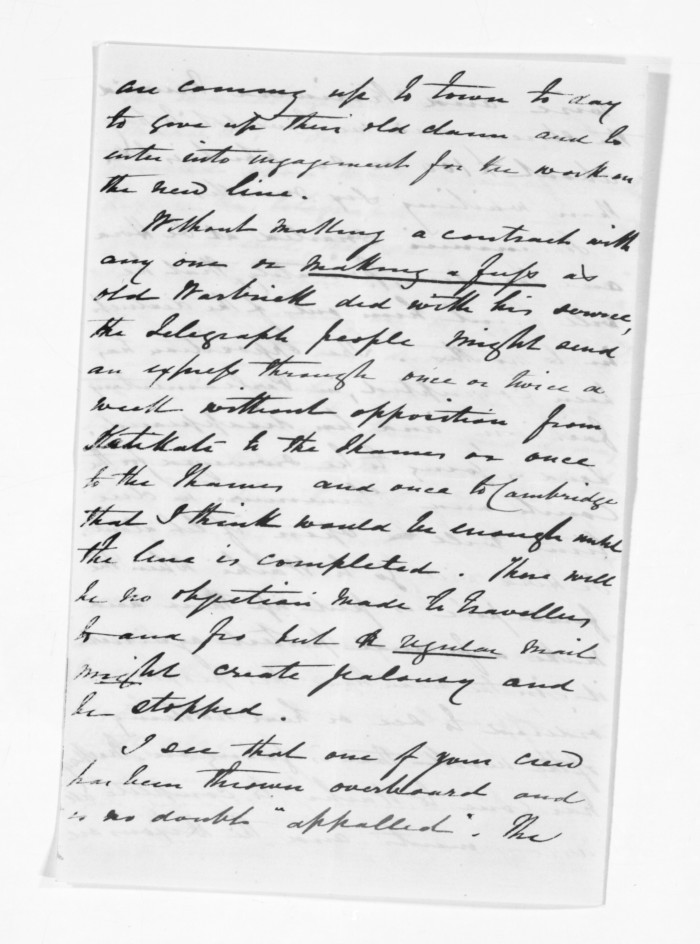 are coming up to town to day
to give up their old claim and to
enter into engagement for the work on
the new line.
Without making a contract with
any one or making a fuss as
old Warbrick did with his service,
the Telegraph people might send
an express through once or twice a
week without opposition from
Katikati to the Thames or once
to the Thames and once to Cambridge
that I think would be enough until
the line is completed. There will
be no objection made to Travellers
to and fro but a regular mail
might create jealousy and
be stopped.
I see that one of your crew
has been thrown overboard and
is no doubt "appalled". The